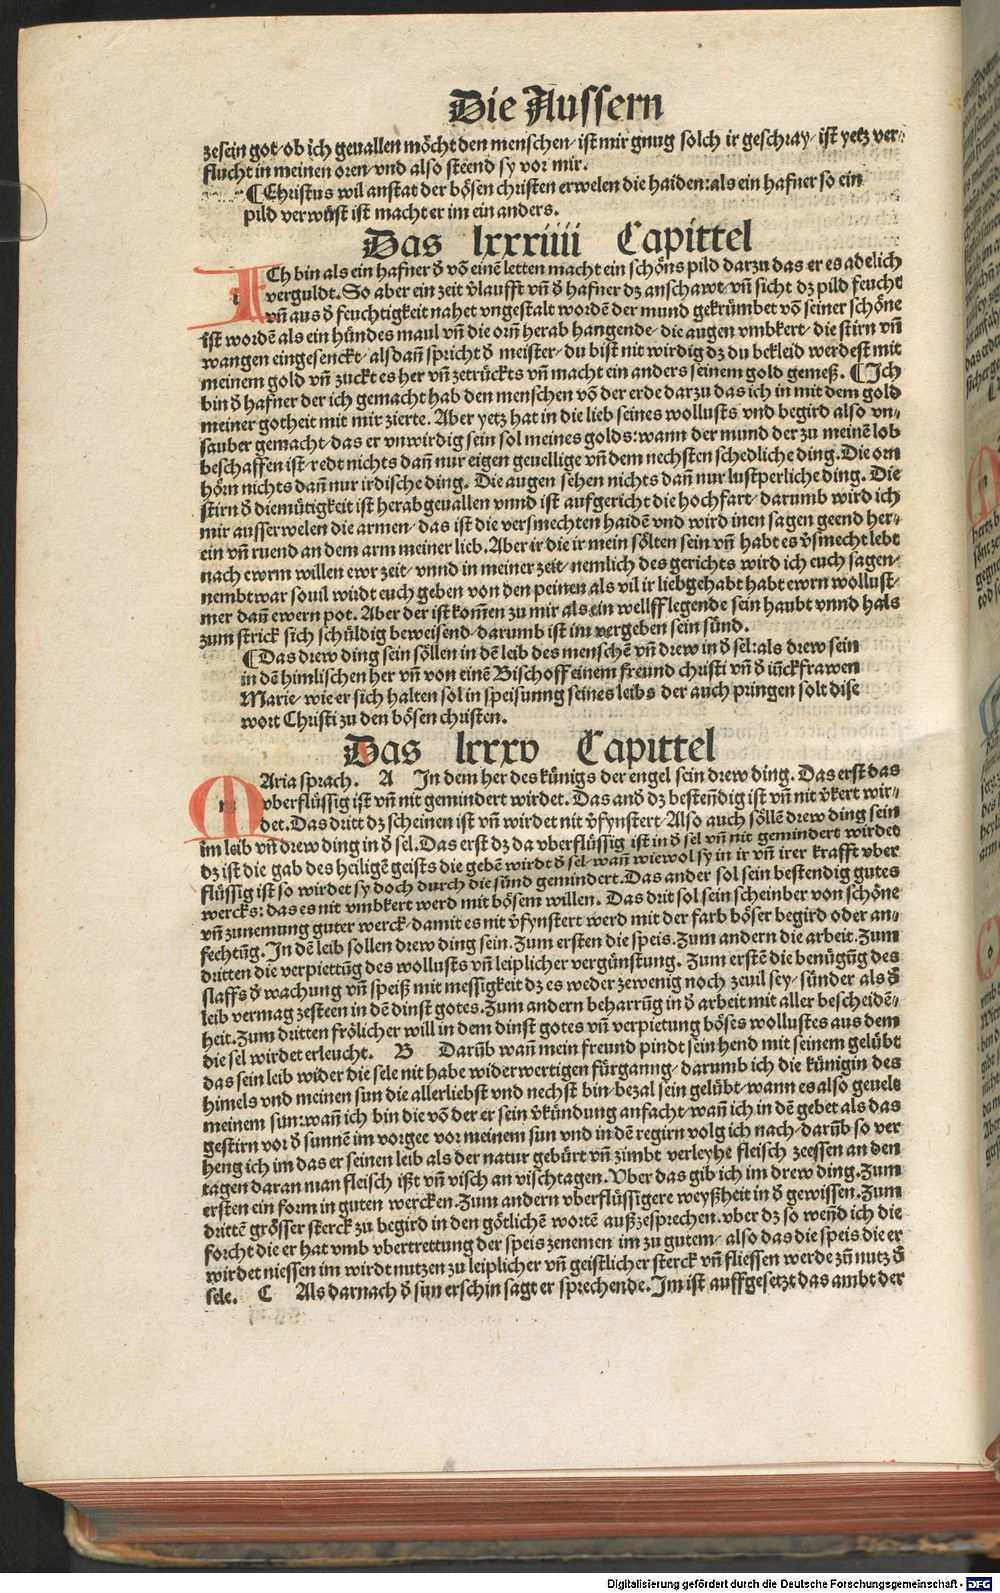 Die Aussern
zesein got/ ob ich geuallen möcht den menschen/ ist mir gnug solch ir geschray/ ist yetz ver⸗
flucht in meinen oren/ vnd also steend sy vor mir.
¶ Christus wil anstat der bösen christen erwelen die haiden: als ein hafner so ein
pild verwüst ist macht er im ein anders.
Das lxxxiiii Capittel
ICh bin als ein hafner ď võ einē letten macht ein schöns pild darzu das er es adelich
verguldt. So aber ein zeit v̉laufft vñ ď hafner dz anschawt/ vñ sicht dz pild feucht
vñ aus ď feuchtigkeit nahet vngestalt wordē der mund gekrümbet võ seiner schöne
ist wordē als ein hündes maul vñ die orñ herab hangende/ die augen vmbkert/ die stirn vñ
wangen eingesenckt/ alsdañ spricht ď meister/ du bist nit wirdig dz du bekleid werdest mit
meinem gold vñ zuckt es her vñ zetrückts vñ macht ein anders seinem gold gemeß. ¶ Ich
bin ď hafner der ich gemacht hab den menschen võ der erde darzu das ich in mit dem gold
meiner gotheit mit mir zierte. Aber yetz hat in die lieb seines wollusts vnd begird also vn⸗
sauber gemacht/ das er vnwirdig sein sol meines golds: wann der mund der zu meinē lob
beschaffen ist/ redt nichts dañ nur eigen geuellige vñ dem nechsten schedliche ding. Die orn
hörn nichts dañ nur irdische ding. Die augen sehen nichts dañ nur lustperliche ding. Die
stirn ď diemütigkeit ist herab geuallen vnnd ist auffgericht die hochfart/ darumb wird ich
mir ausserwelen die armen/ das ist die versmechten haidē vnd wird inen sagen geend her⸗
ein vñ ruend an dem arm meiner lieb. Aber ir die ir mein sölten sein vñ habt es v̉smecht lebt
nach ewrm willen ewr zeit/ vnnd in meiner zeit/ nemlich des gerichts wird ich euch sagen/
nembt war souil wirdt euch geben von den peinen als vil ir liebgehabt habt ewrn wollust/
mer dañ ewern pot. Aber der ist kom̄en zu mir als ein wellff legende sein haubt vnnd hals
zum strick sich schüldig beweisend/ darumb ist im vergeben sein sünd.
¶ Das drew ding sein söllen in dē leib des menschē vñ drew in ď sel: als drew sein
in dē himlischen her vñ von einē Bischoff einem freund christi vñ ď iückfrawen
Marie/ wie er sich halten sol in speisunng seines leibs der auch pringen solt dise
wort Christi zu den bösen christen.
Das lxxxv Capittel
MAria sprach. A In dem her des künigs der engel sein drew ding. Das erst das
vberflüssig ist vñ nit gemindert wirdet. Das anď dz besteñdig ist vñ nit v̉kert wir⸗
det. Das dritt dz scheinen ist vñ wirdet nit v̉fynstert/ Also auch söllē drew ding sein
im leib vñ drew ding in ď sel. Das erst dz da vberflüssig ist in ď sel vñ nit gemindert wirdet
dz ist die gab des heiligē geists die gebē wirdt ď sel/ wañ wiewol sy in ir vñ irer krafft vber
flüssig ist so wirdet sy doch durch die sünd gemindert. Das ander sol sein bestendig gutes
wercks: das es nit vmbkert werd mit bösem willen. Das drit sol sein scheinber von schöne
vñ zunemung guter werck/ damit es nit v̉fynstert werd mit der farb böser begird oder an⸗
fechtũg. In dē leib sollen drew ding sein. Zum ersten die speis. Zum andern die arbeit. Zum
dritten die verpiettũg des wollusts vñ leiplicher vergünstung. Zum erstē die benügũg des
slaffs ď wachung vñ speiß mit messigkeit dz es weder zewenig noch zeuil sey/ sünder als ď
leib vermag zesteen in dē dinst gotes. Zum andern beharrũg in ď arbeit mit aller bescheidē⸗
heit. Zum dritten frölicher will in dem dinst gotes vñ verpietung böses wollustes aus dem
die sel wirdet erleucht. B Darũb wañ mein freund pindt sein hend mit seinem gelübt
das sein leib wider die sele nit habe widerwertigen fürgañg/ darumb ich die künigin des
himels vnd meinen sun die allerliebst vnd nechst bin/ bezal sein gelübt/ wann es also geuelt
meinem sun: wañ ich bin die võ der er sein v̉kündung anfacht/ wañ ich in dē gebet als das
gestirn vor ď sunnē im vorgee vor meinem sun vnd in dē regirn volg ich nach/ darũb so ver
heng ich im das er seinen leib als der natur gebürt vñ zimbt verleyhe fleisch zeessen an den
tagen daran man fleisch ißt vñ visch an vischtagen. Vber das gib ich im drew ding. Zum
ersten ein form in guten wercken. Zum andern vberflüssigere weyßheit in ď gewissen. Zum
drittē grösser sterck zu begird in den götlichē wortē außzesprechen. vber dz so weñd ich die
forcht die er hat vmb vbertrettung der speis zenemen im zu gutem/ also das die speis die er
wirdet niessen im wirdt nutzen zu leiplicher vñ geistlicher sterck vñ fliessen werde zũ nutz ď
sele. C Als darnach ď sun erschin sagt er sprechende. Im ist auffgesetzt das ambt der
Digitalisierung gefördert durch die Deutsche Forschungsgemeinschaft - DFG